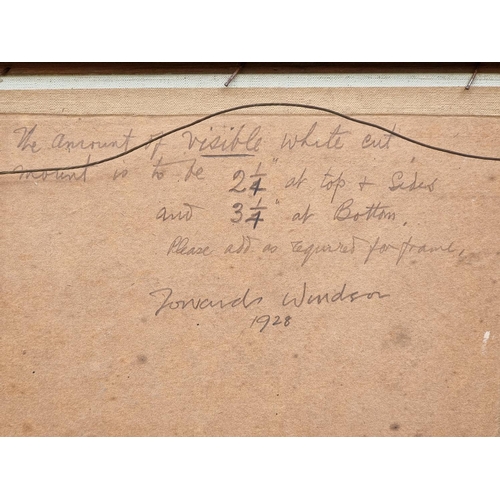 The amount of visible white cut
mount is to be 2 1/4" at top + Sides
and 3 1/4" at Bottom.
Please add as required for frame.
Towards Windsor
1928